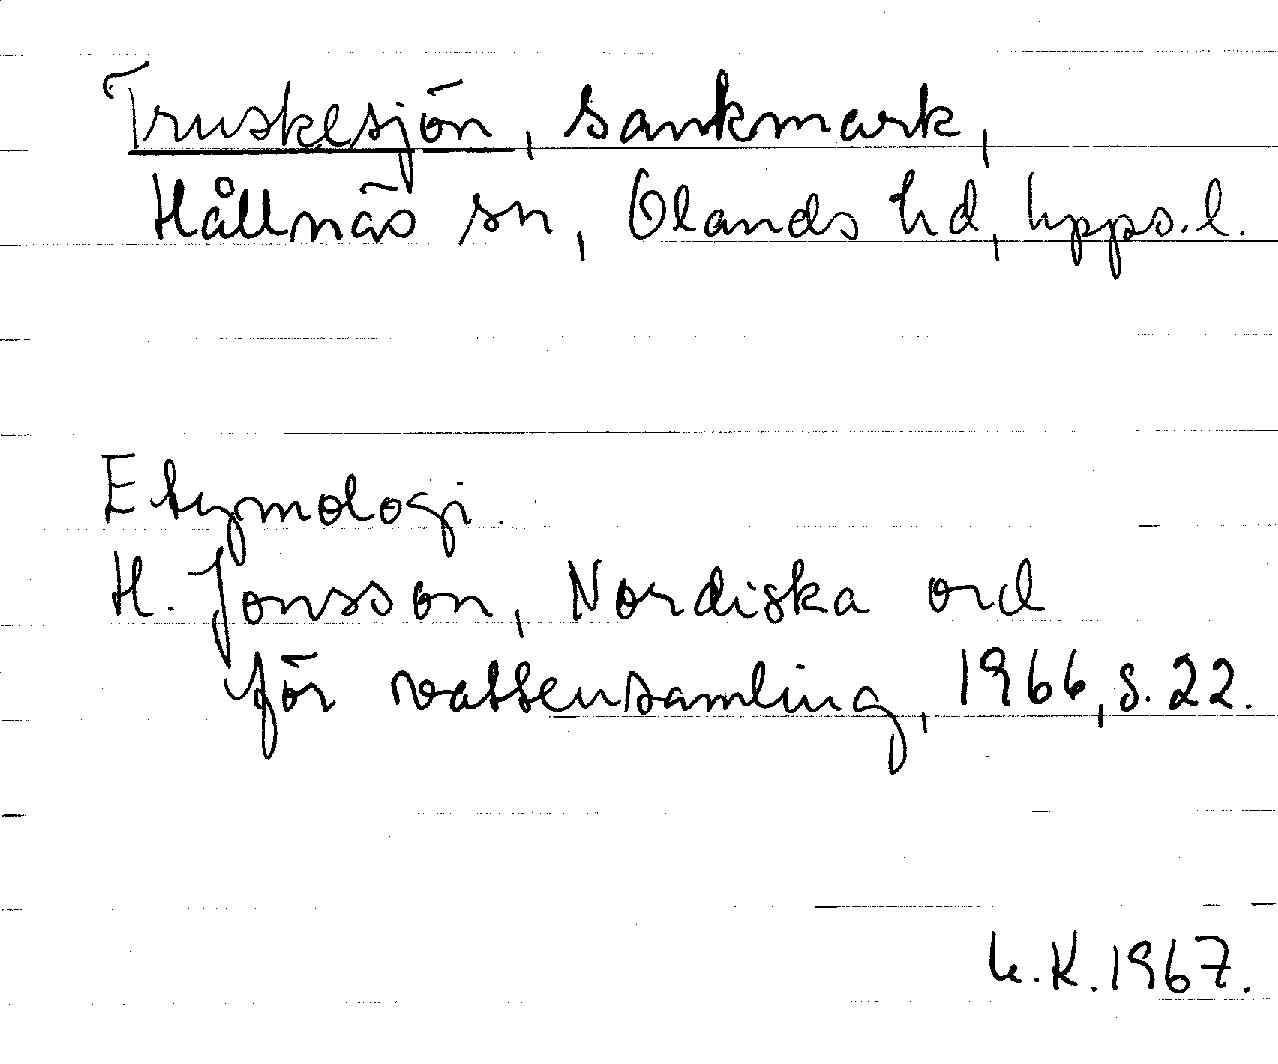 Truskesjön, sankmark,
Hållnäs sn, Olands hd, Upps.l.
Etymologi.
H. Jonsson, Nordiska ord
för vattensamling, 1966, s. 22.
U.K. 1967.